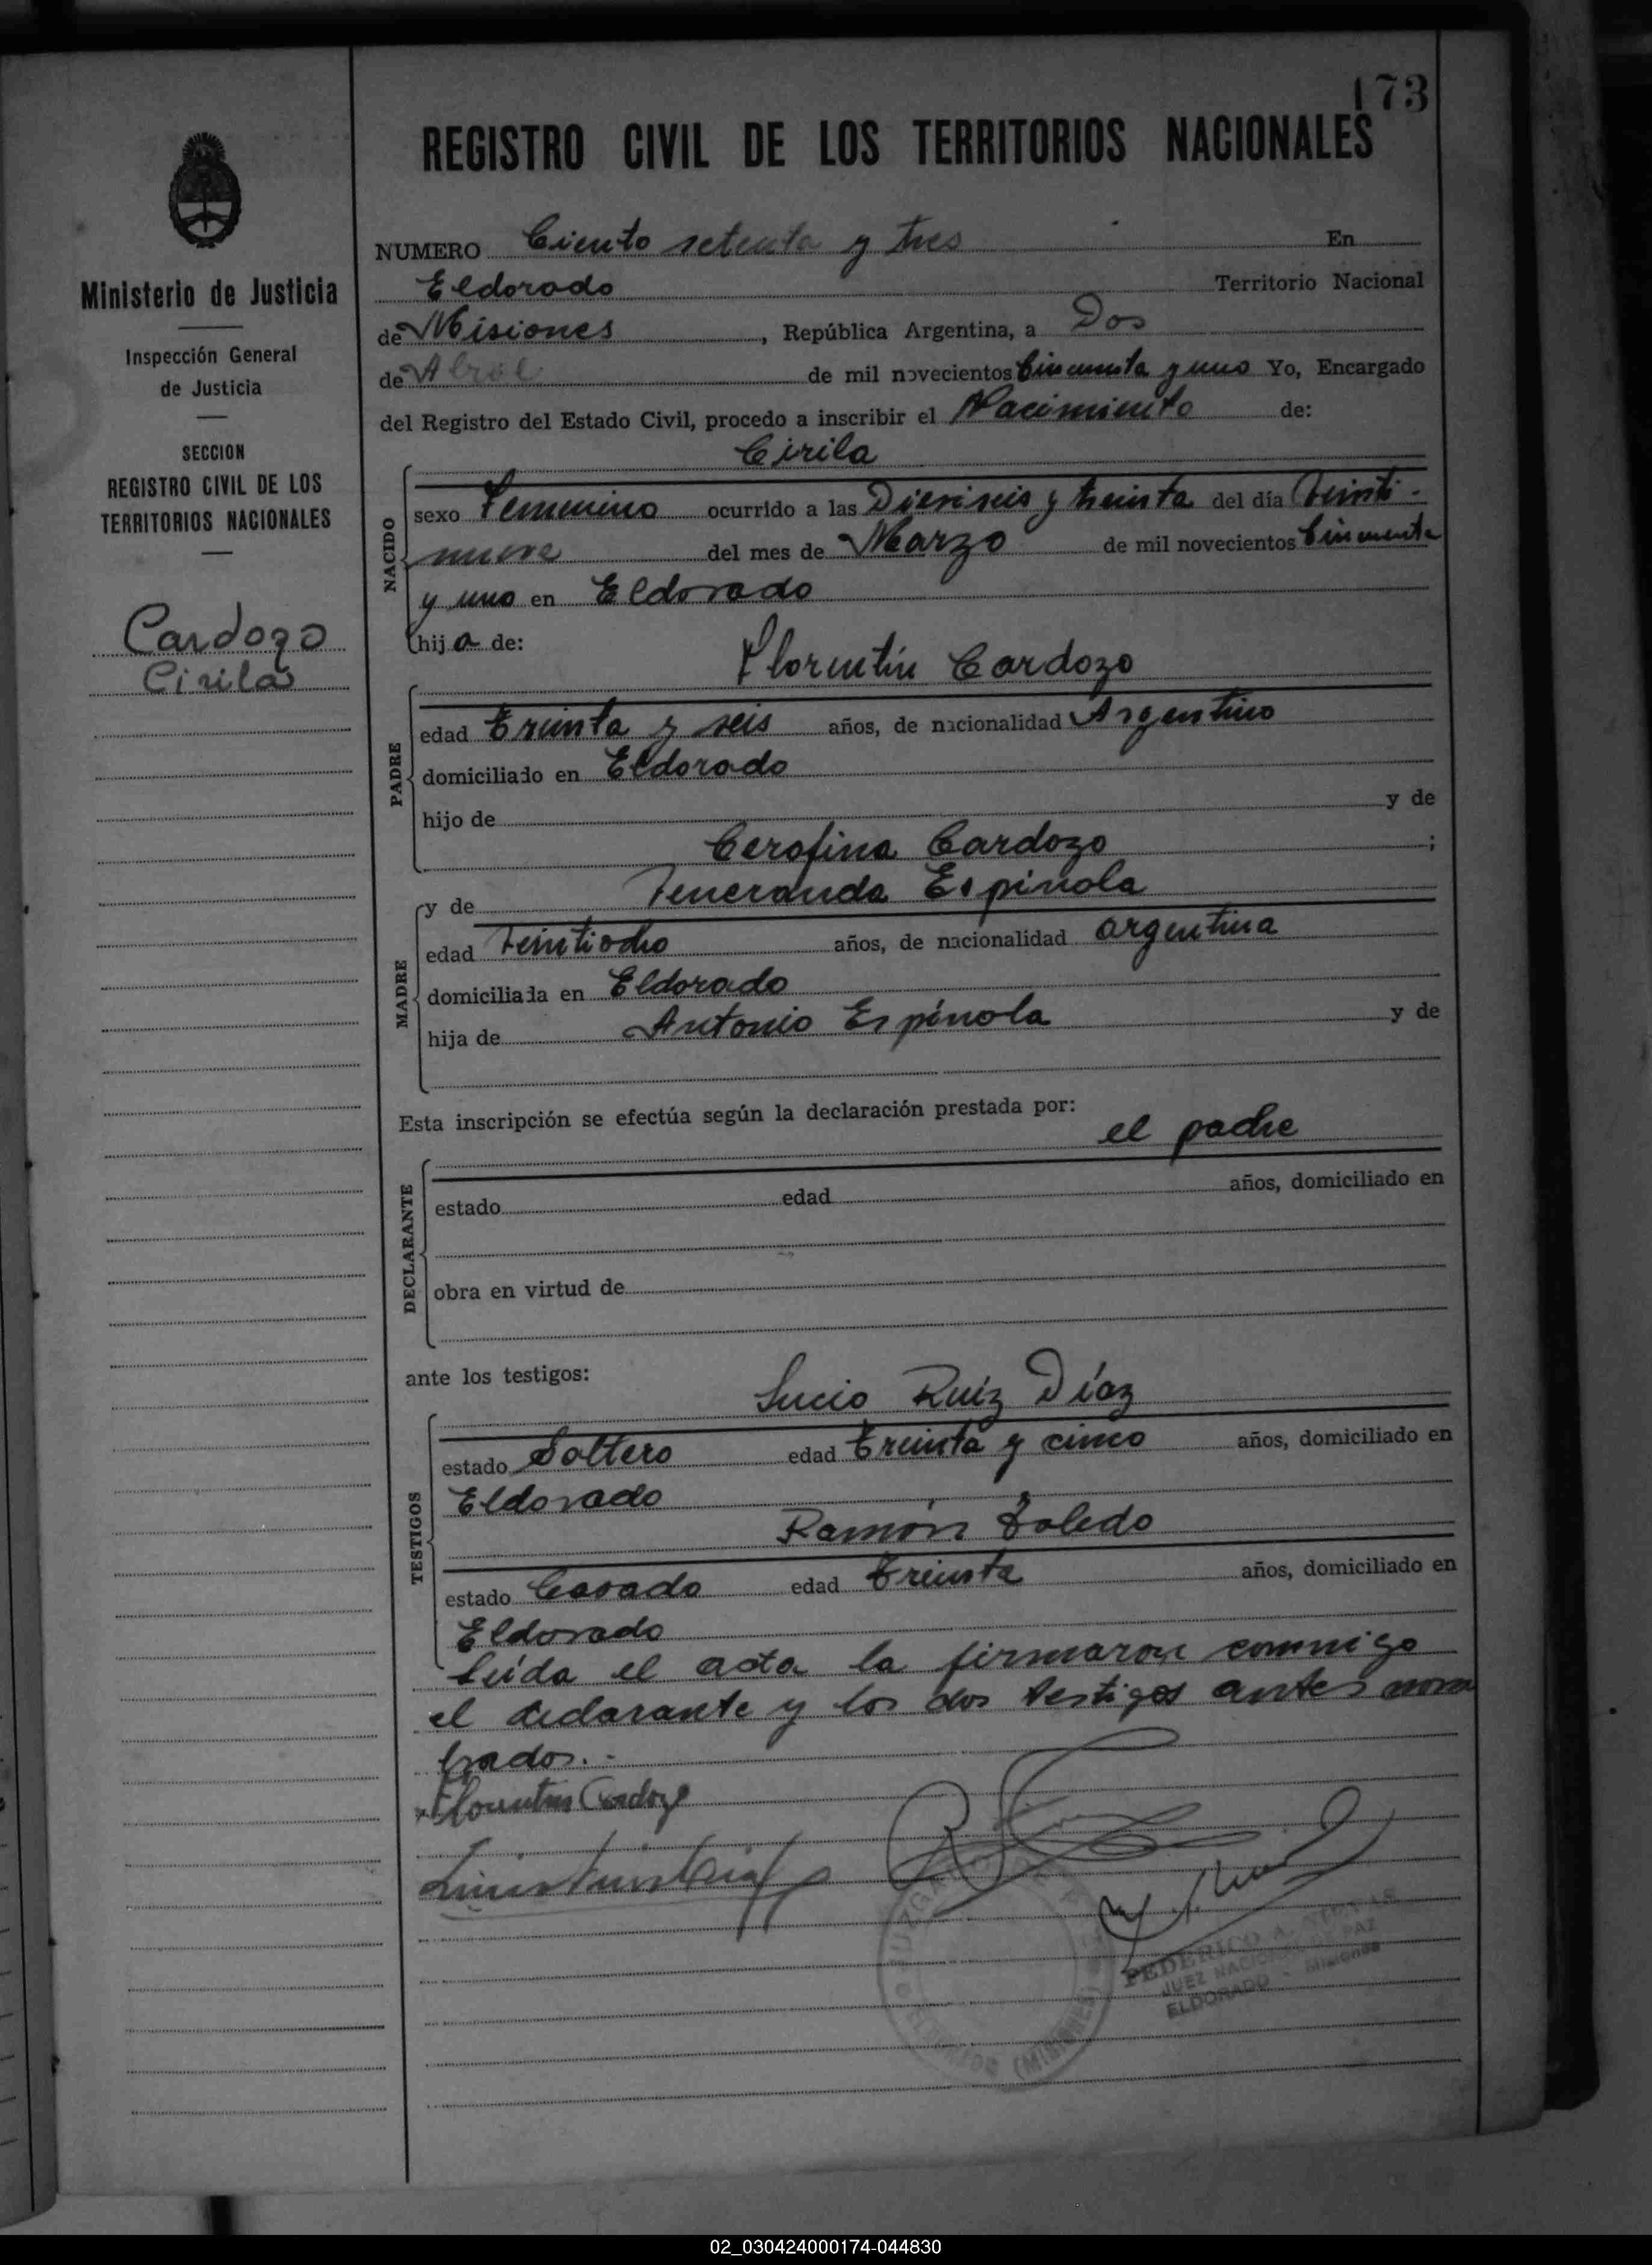 173
REGISTRO CIVIL DE LOS TERRITORIOS NACIONALES
Ministerio de Justicia
Inspección General
de Justicia
SECCION
REGISTRO CIVIL DE LOS
TERRITORIOS NACIONALES
Cardozo
Cirila
NUMERO Ciento setenta y tres En
Eldorado Territorio Nacional
de Misiones, República Argentina, a Dos
de Abril de mil novecientos Cincuenta y uno Yo, Encargado
del Registro del Estado Civil, procedo a inscribir el Nacimiento de:
Cirila
NACIDO
sexo Femenino ocurrido a las Dieciseis y treinta del día Veinti-
nueve del mes de Marzo de mil novecientos Cincuenta
y uno en Eldorado
hija de:
Florentín Cardozo
PADRE
edad Treinta y seis años, de nacionalidad Argentino
domiciliado en Eldorado
hijo de y de
Cerafina Cardozo ;
y de Veneranda Espínola
MADRE
edad Veintiocho años, de nacionalidad argentina
domiciliada en Eldorado
hija de Antonio Espínola y de
Esta inscripción se efectúa según la declaración prestada por:
el padre
DECLARANTE
estado edad años, domiciliado en
obra en virtud de
ante los testigos:
Lucio Ruíz Díaz
TESTIGOS
estado Soltero edad Treinta y cinco años, domiciliado en
Eldorado
Ramón Toledo
estado Casado edad Treinta años, domiciliado en
Eldorado
Leída el acta la firmaron conmigo
el declarante y los dos testigos antes nom
brados.-
Florentin Cardozo
FEDERICO A.
JUEZ NACIONAL DE PAZ
ELDORADO - Misiones
JUZGADO
(MISIONES)
02_030424000174-044830